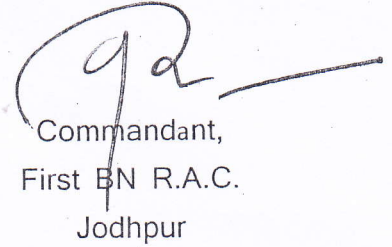 Commandant,
First BN R.A.C.
Jodhpur